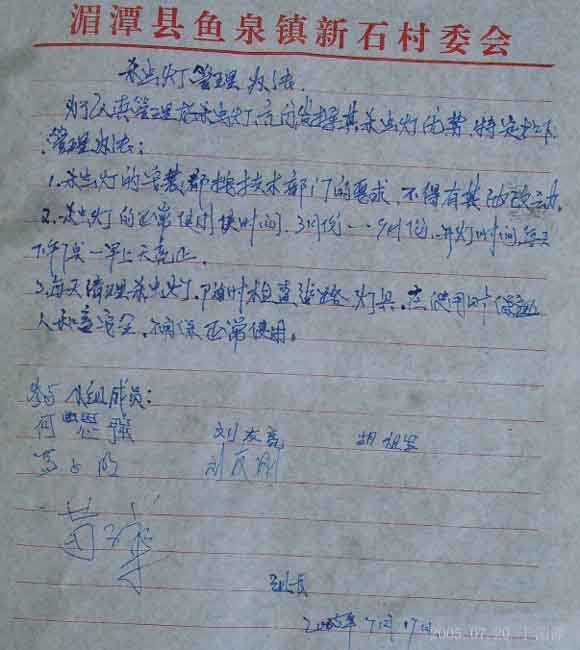 湄潭县鱼泉镇新石村委会
杀虫灯管理办法
为了认真管理好杀虫灯,充分发挥其杀虫灯优势,特定如下
管理办法:
1.杀虫灯的安装都按技术部门的要求,不得有其他改动.
2.杀虫灯的正常使用使时间,3月份一9月份,开灯时间,每天
下午7点一早上天亮止.
3.每天清理杀虫灯,随时检查线路灯具,在使用时保证
人和畜安全,确保正常使用。
参与小组成员:
何思强 刘友亮 胡祖
刘庆刚
黄
组长
2005年7月17日
2005.07.20